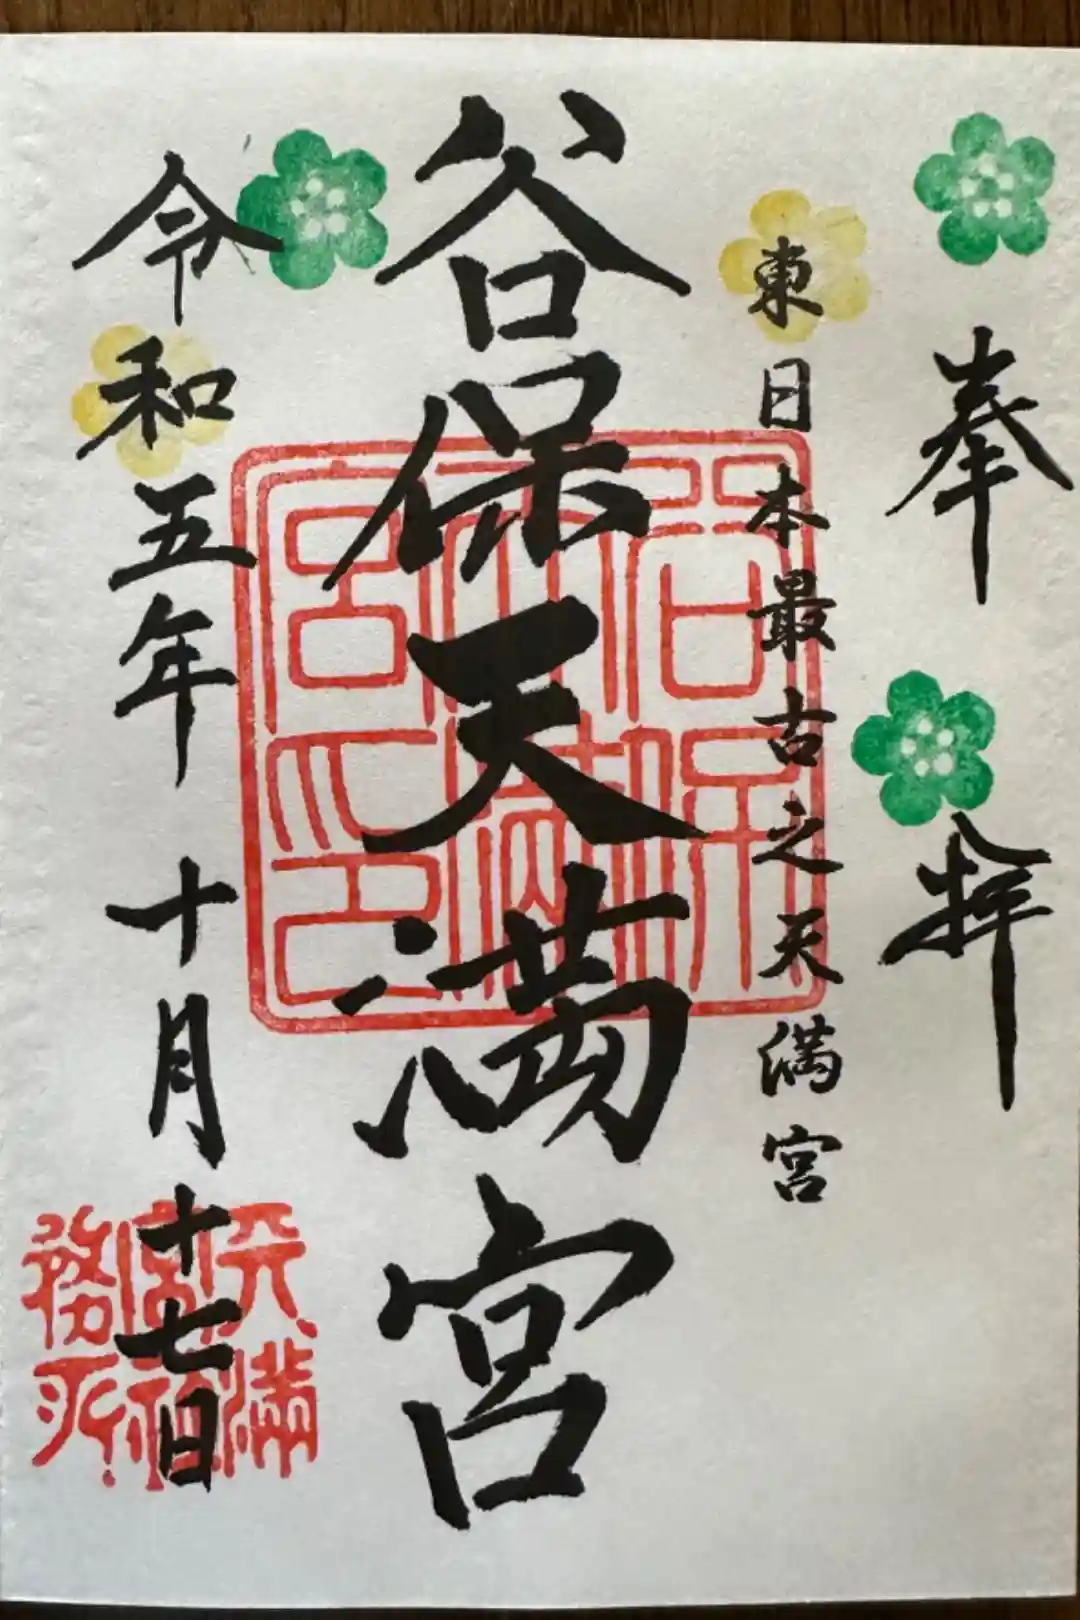 奉拝
東日本最古之天満宮
谷保天満宮
令和五年十月十七日
谷保天満宮印
天満宮社務所